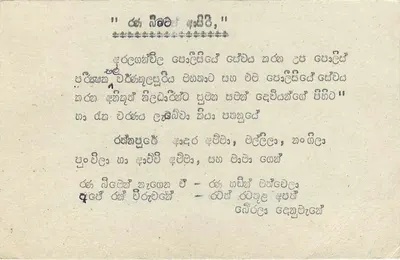 " රණ බිමෙන් ආසිරි,"
අරලගන්විල පොලිසියේ සේවය කරන උප පොලිස්
පරීක්ෂක වර්ණකුලසූරිය මහතාට සහ එම පොලිසියේ සේවය
කරන අනිකුත් නිලධාරීන්ට සුමන සමන් දෙවියන්ගේ පිහිට"
හා රැක වරණය ලැබේවා කියා පතනුයේ
රත්නපුරේ ආදර අම්මා, මල්ලිලා, නංගිලා
පුංචිලා හා ආච්චි අම්මා, සහ මාමා ගෙන්
රණ බිමෙන් නැගෙන ඒ - රණ හඬින් මත්වෙලා
අපේ රන් විරුවනේ - රටත් රටතුළ අපත්
බේරලා දෙනුවැනේ